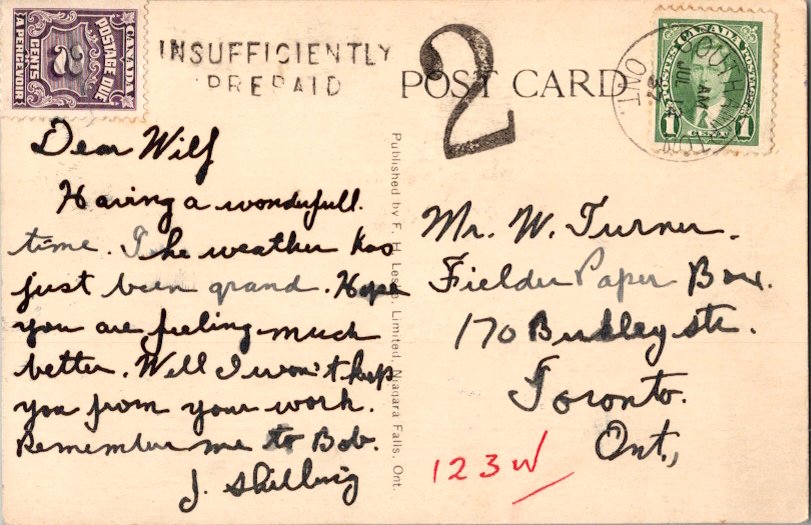 CANADA
POSTAGE DUE
2
CENTS
A PERCEVOIR
INSUFFICIENTLY
PREPAID
2
POST CARD
SOUTHAMPTON
AM
JUL
ONT.
POSTES CANADA POSTAGE
1 CENT 1
Dear Wilf
Having a wonderfull
time. The weather has
just been grand. Hope
you are feeling much
better. Well I won't keep
you from your work.
Remember me to Bob.
J. Skilling
Published by F. H. Leslie, Limited, Niagara Falls, Ont.
Mr. W. Turner.
Fielder Paper Box.
170 str.
Toronto.
Ont.,
123W